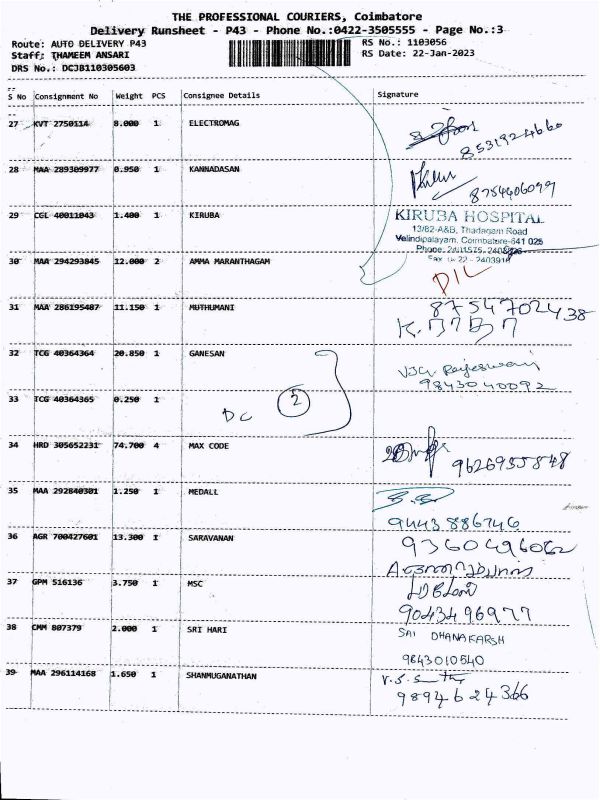 THE PROFESSIONAL COURIERS, Coimbatore
Delivery Runsheet - P43 - Phone No.:0422-3505555 - Page No.:3
Route: AUTO DELIVERY P43 RS No.: 1103056
Staff: THAMEEM ANSARI RS Date: 22-Jan-2023
DRS No.: DCJB110305603
S No Consignment No Weight PCS Consignee Details Signature
27 KVT 2750114 8.000 1 ELECTROMAG
8531924660
28 MAA 289309977 0.950 1 KANNADASAN
8754406099
29 CGL 40011043 1.400 1 KIRUBA KIRUBA HOSPITAL
13/62-A&B, Thadagam Road
Velindipalayam, Coimbatore-641 025
30 MAA 294293845 12.000 2 AMMA MARANTHAGAM
D/L
31 MAA 286195487 11.150 1 MUTHUMANI 8754702438
32 TCG 40364364 20.850 1 GANESAN
9843040092
33 TCG 40364365 0.250 1
DC 2
34 HRD 305652231 74.700 4 MAX CODE
9626955848
35 MAA 292840301 1.250 1 MEDALL
9443886746
36 AGR 700427601 13.300 1 SARAVANAN 9360496062
37 GPM 516136 3.750 1 MSC
9043496977
38 CMM 807379 2.000 1 SRI HARI SAI DHANAKARSH
9843010540
39 MAA 296114168 1.650 1 SHANMUGANATHAN
9894624366